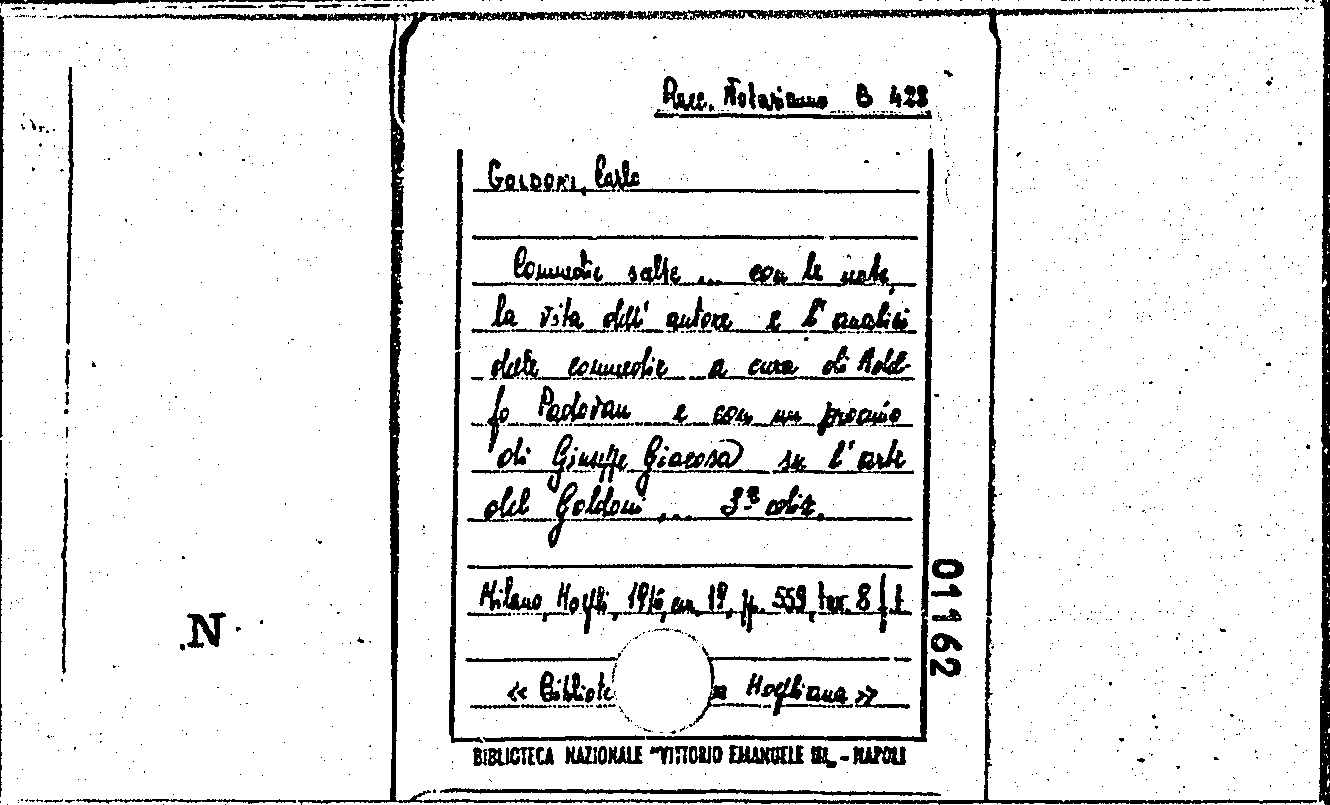 Racc. Notarianno B 428
GOLDONI, Carlo
Commedie scelte ... con le note,
la vita dell'autore e l'analisi
delle commedie a cura di Adol-
fo Padovan e con un proemio
di Giuseppe Giacosa su l'arte
del Goldoni ... 3ª ediz.
Milano, Hoepli, 1916, cm. 19, pp. 559, tav. 8 f.t.
« Bibliote a Hoepliana »
BIBLIOTECA NAZIONALE "VITTORIO EMANUELE III„ - NAPOLI
01162
.N